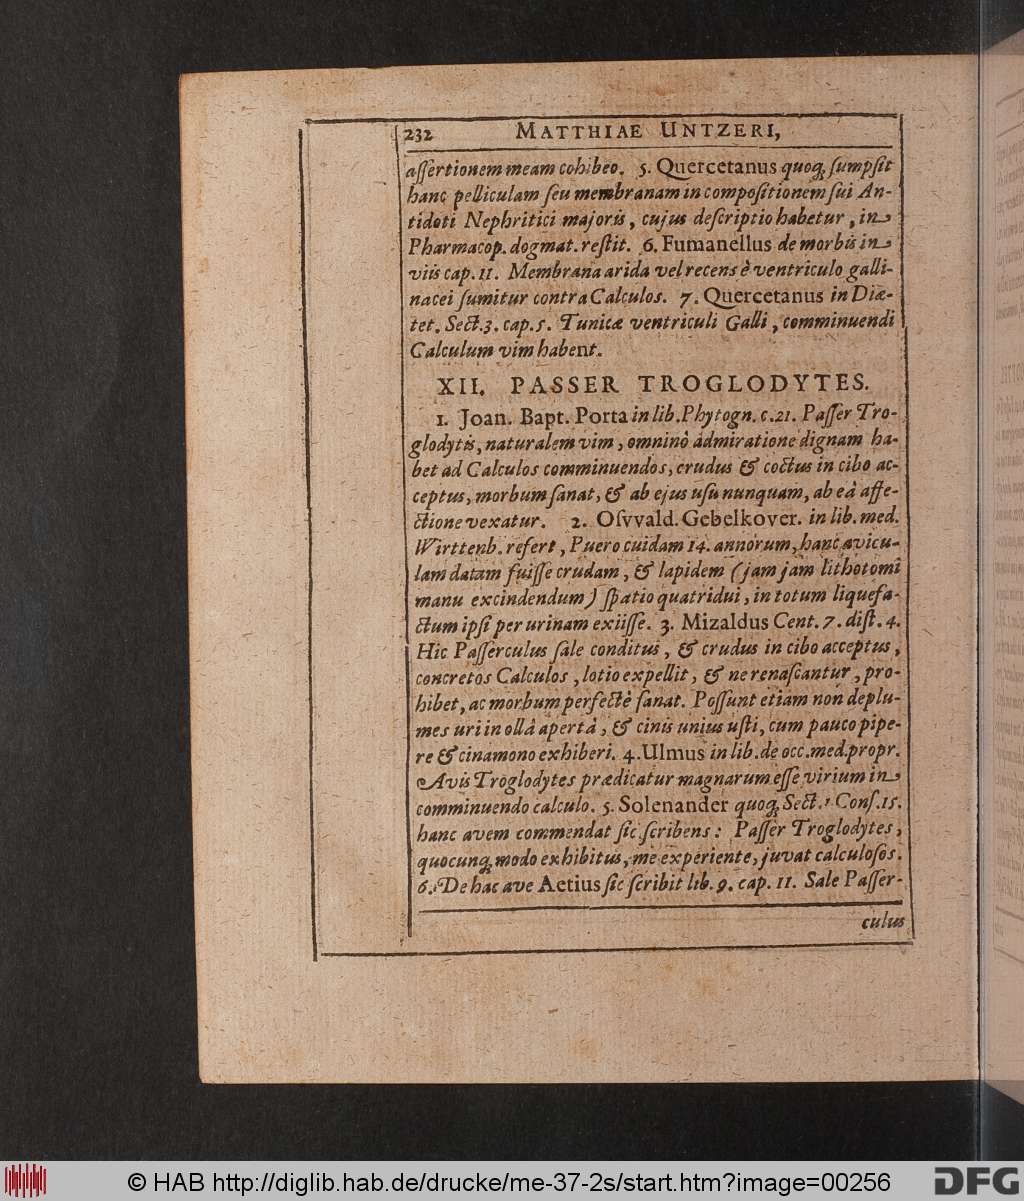 232 MATTHIAE UNTZERI,
aſſertionem meam cohibeo. 5. Quercetanus quoq; ſumpſit
hanc pelliculam ſeu membranam in compoſitionem ſui An-
tidoti Nephritici majoris, cujus deſcriptio habetur, in
Pharmacop. dogmat. reſtit. 6. Fumanellus de morbis in
viis cap. 11. Membrana arida vel recens è ventriculo galli-
nacei ſumitur contra Calculos. 7. Quercetanus in Diæ-
tet. Sect. 3. cap. 5. Tunicæ ventriculi Galli, comminuendi
Calculum vim habent.
XII. PASSER TROGLODYTES.
1. Joan. Bapt. Porta in lib. Phytogn. c. 21. Paſſer Tro-
glodytis, naturalem vim, omninò admiratione dignam ha-
bet ad Calculos comminuendos, crudus & coctus in cibo ac-
ceptus, morbum ſanat, & ab ejus uſu nunquam, ab eâ affe-
ctione vexatur. 2. Oſvvald. Gebelkover. in lib. med.
Wirttenb. refert, Puero cuidam 14. annorum, hanc avicu-
lam datam fuiſſe crudam, & lapidem (jam jam lithotomi
manu excindendum) ſpatio quatridui, in totum liquefa-
ctum ipſi per urinam exiiſſe. 3. Mizaldus Cent. 7. diſt. 4.
Hic Paſſerculus ſale conditus, & crudus in cibo acceptus,
concretos Calculos, lotio expellit, & ne renaſcantur, pro-
hibet, ac morbum perfectè ſanat. Poſſunt etiam non deplu-
mes uri in ollâ apertâ, & cinis unius uſti, cum pauco pipe-
re & cinamono exhiberi. 4. Ulmus in lib. de occ. med. propr.
Avis Troglodytes prædicatur magnarum eſſe virium in
comminuendo calculo. 5. Solenander quoq; Sect. 1 Conſ. 15.
hanc avem commendat ſic ſcribens: Paſſer Troglodytes,
quocunq; modo exhibitus, me experiente, juvat calculoſos.
6. De hac ave Aetius ſic ſcribit lib. 9. cap. 11. Sale Paſſer-
culus
© HAB http://diglib.hab.de/drucke/me-37-2s/start.htm?image=00256
DFG